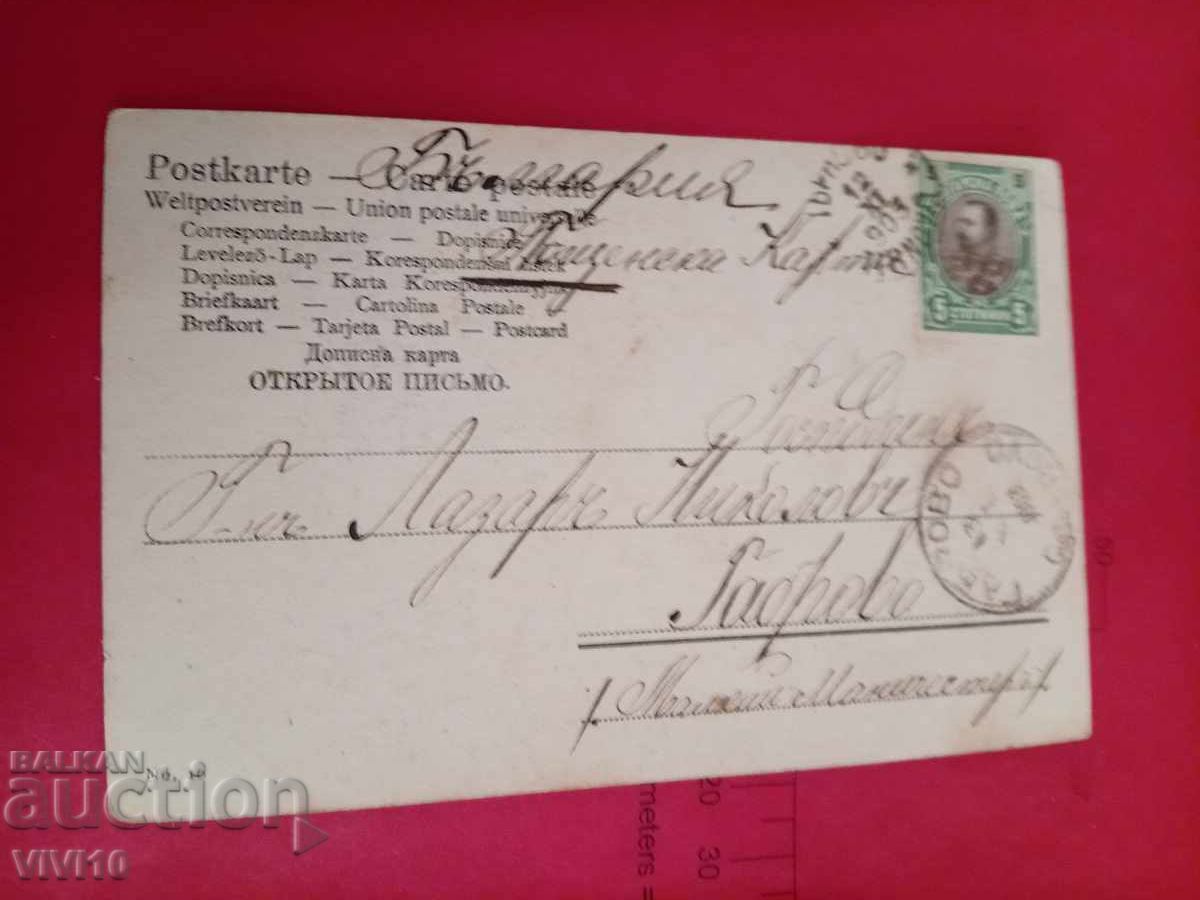 България
Postkarte — Carte postale
Weltpostverein — Union postale universelle
Пощенска Карта
Correspondenzkarte — Dopisnice
Levelező-Lap — Korespondenční lístek
Dopisnica — Karta Korespondencyjna
Briefkaart — Cartolina Postale
Brefkort — Tarjeta Postal — Postcard
Дописна карта
ОТКРЫТОЕ ПИСЬМО.
5 СТОТИНКИ 5
Г-нъ Лазаръ Николовъ
Габрово
/. Малкий Манчестеръ /.
BALKAN
auction
VIVI10
meters =
20 30
60